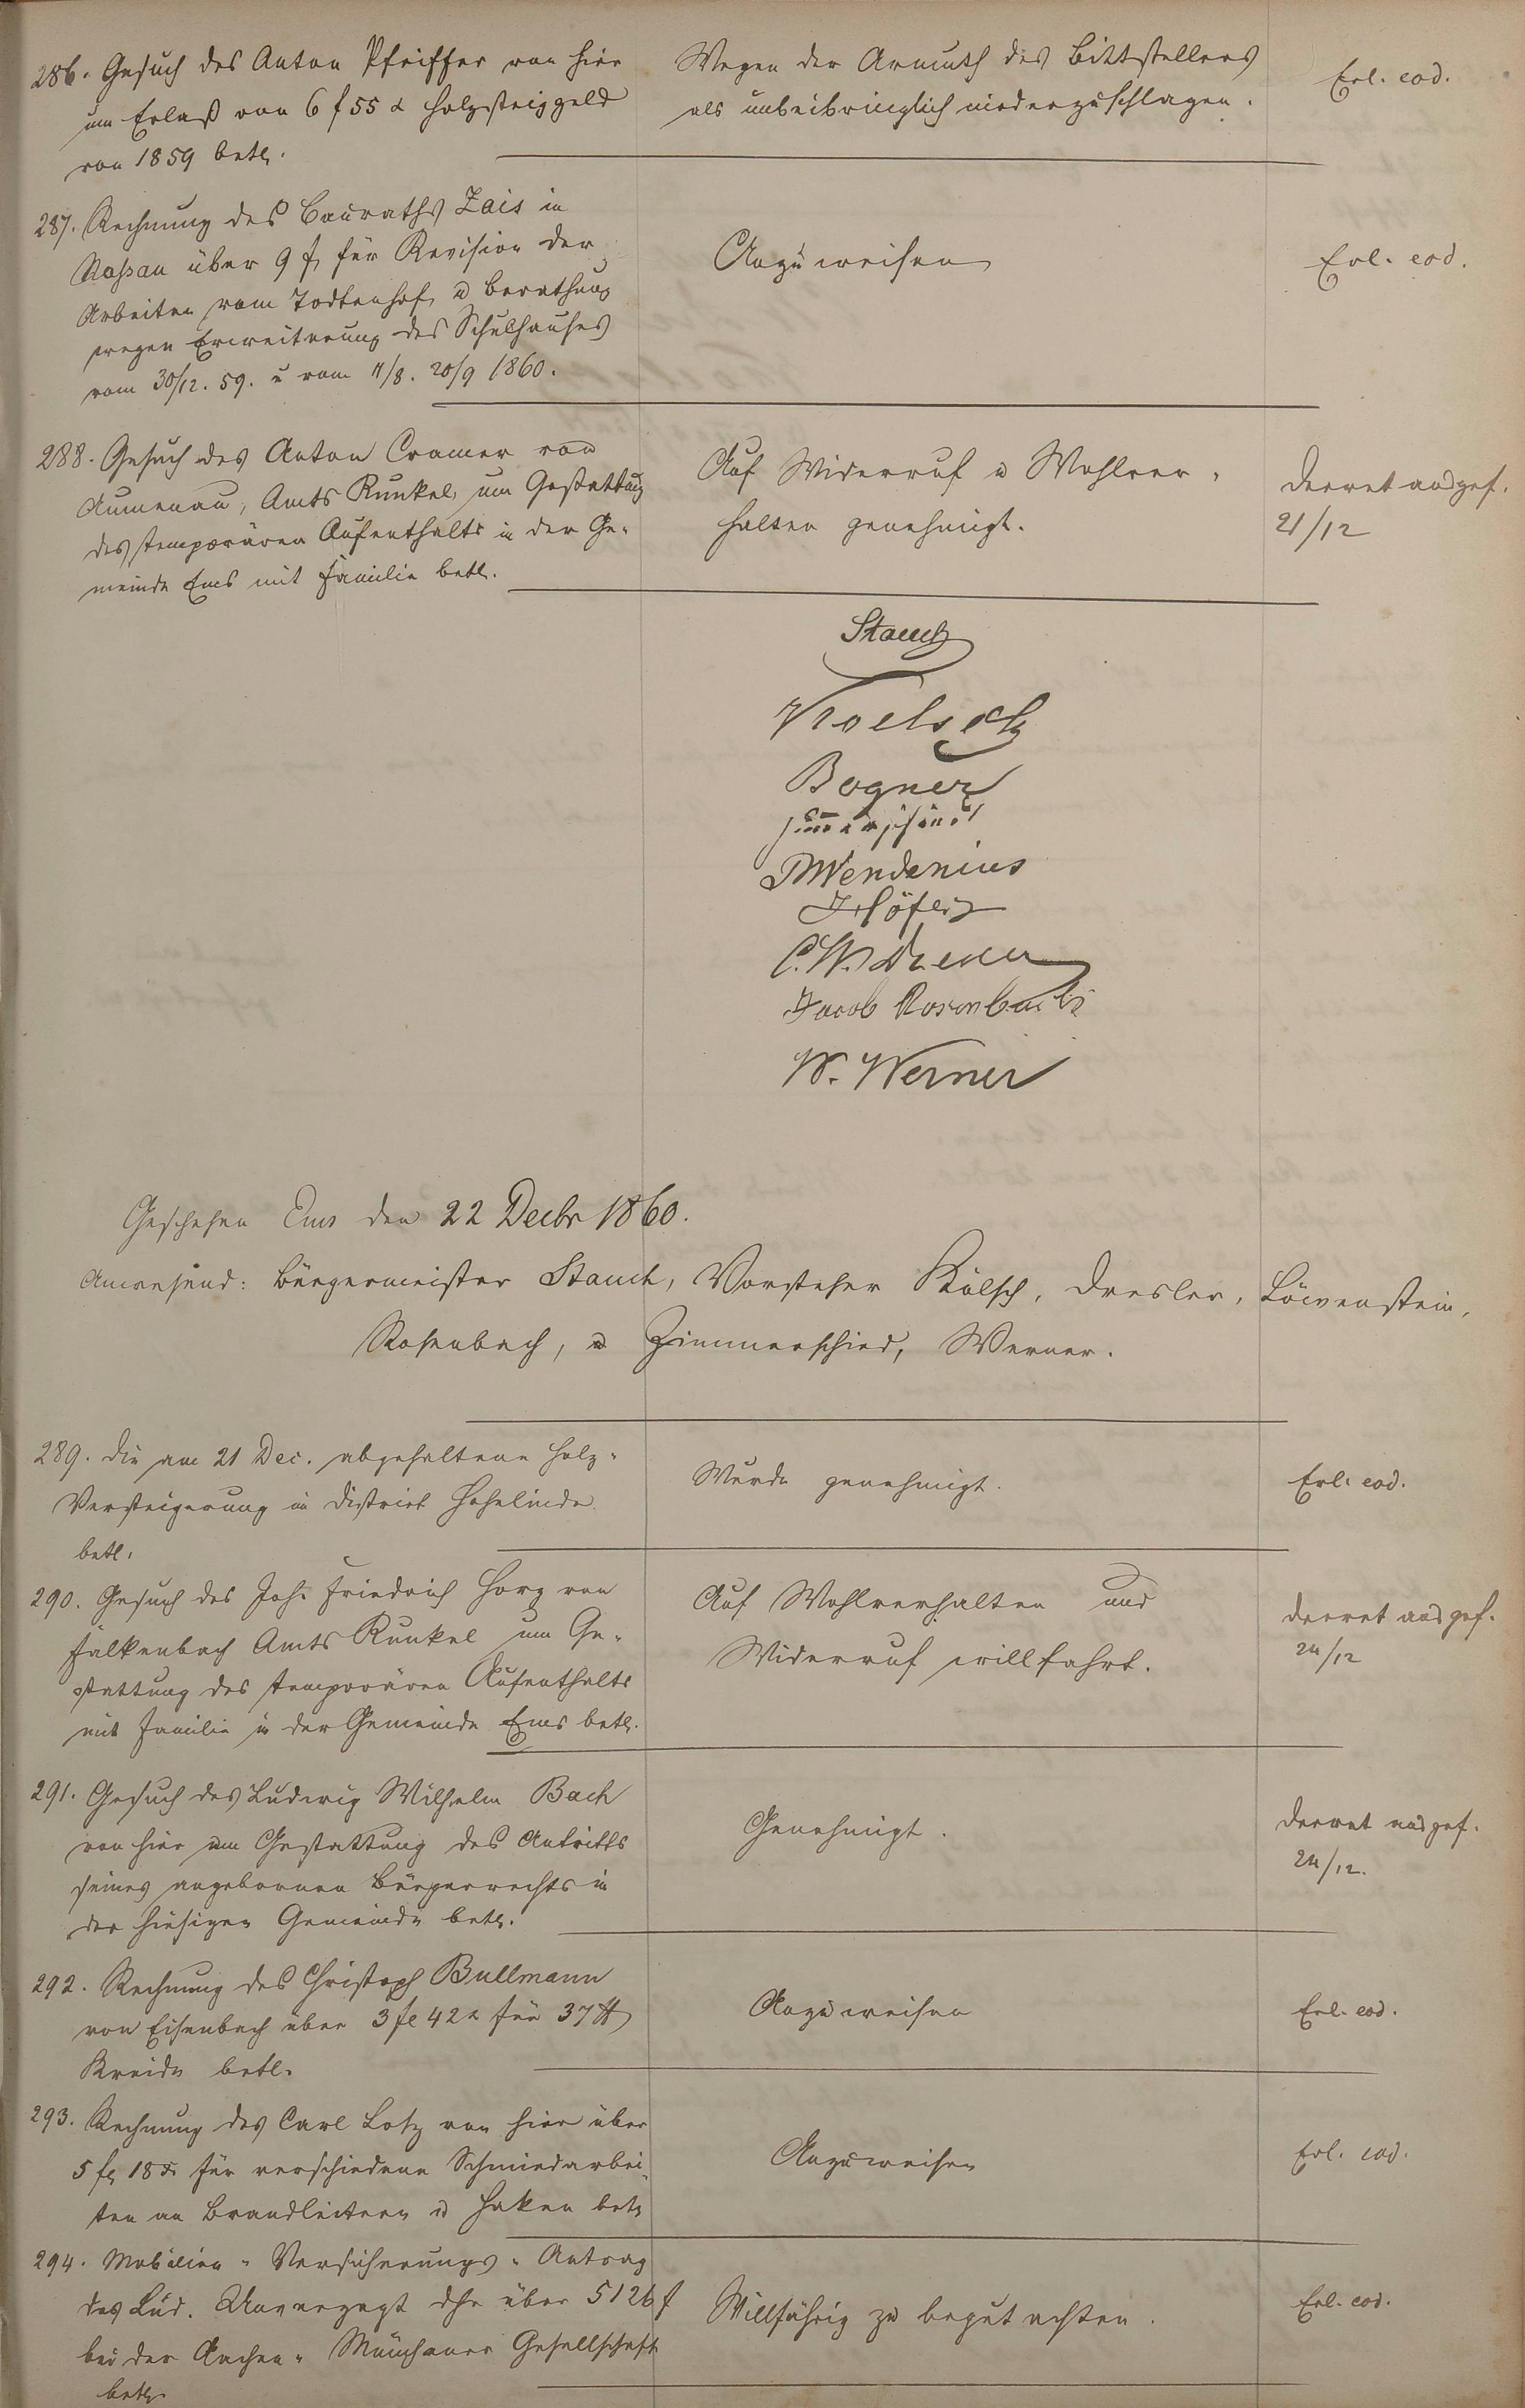 286. Gesuch des Anton Pfeiffer von hier
um Erlaß von 6 f 55 x Holzsteiggeld
von 1859 betr.
Wegen der Armuth des Bittstellers
als unbeibringlich niederzuschlagen.
Erl. eod.
287. Rechnung des Bauraths Zais in
Nassau über 9 f für Revision der
Arbeiten vom Todtenhof u Berathung
wegen Erweiterung des Schulhauses
vom 30/12. 59. u vom 11/8. 20/9 1860.
Anzuweisen
Erl. eod.
288. Gesuch des Anton Cramer von
Aumenau, Amts Runkel, um Gestattung
des temporären Aufenthalts in der Ge-
meinde Ems mit Familie betr.
Auf Widerruf u Wohlver-
halten genehmigt.
Decret ausgef.
21/12
Stauch
Kroelsch
Bogner
Zimmerschied
Wendenius
Höfer
C. W. Dresler
Jacob Rosenbach
W. Werner
Geschehen Ems den 22 Decbr 1860.
Anwesend: Bürgermeister Stauch, Vorsteher Kölsch, Dresler, Löwenstein,
Rosenbach, u Zimmerschied, Werner.
289. Die am 21 Dec. abgehaltene Holz-
Versteigerung in District Hohelinde
betr.
Wurde genehmigt.
Erl. eod.
290. Gesuch des Joh. Friedrich Horz von
Falkenbach Amts Runkel um Ge-
stattung des temporären Aufenthalts
mit Familie in der Gemeinde Ems betr.
Auf Wohlverhalten und
Widerruf willfahrt.
Decret ausgef.
24/12
291. Gesuch des Ludwig Wilhelm Bach
von hier um Gestattung des Antritts
seines angebornen Bürgerrechts in
der hiesigen Gemeinde betr.
Genehmigt.
Decret ausgef.
24/12.
292. Rechnung des Christoph Bullmann
von Eisenbach über 3 fl 42 x für 37 ℔
Kreide betr.
Anzuweisen
Erl. eod.
293. Rechnung des Carl Lotz von hier über
5 fl 18 x für verschiedene Schmiedarbei-
ten an Brandleitern u Haken betr
Anzuweisen
Erl. eod.
294. Mobilien-Versicherungs-Antrag
des Lud. Unverzagt dhr über 5126 f
bei der Aachen-Münchener Gesellschaft
betr
Willfährig zu begutachten.
Erl. eod.